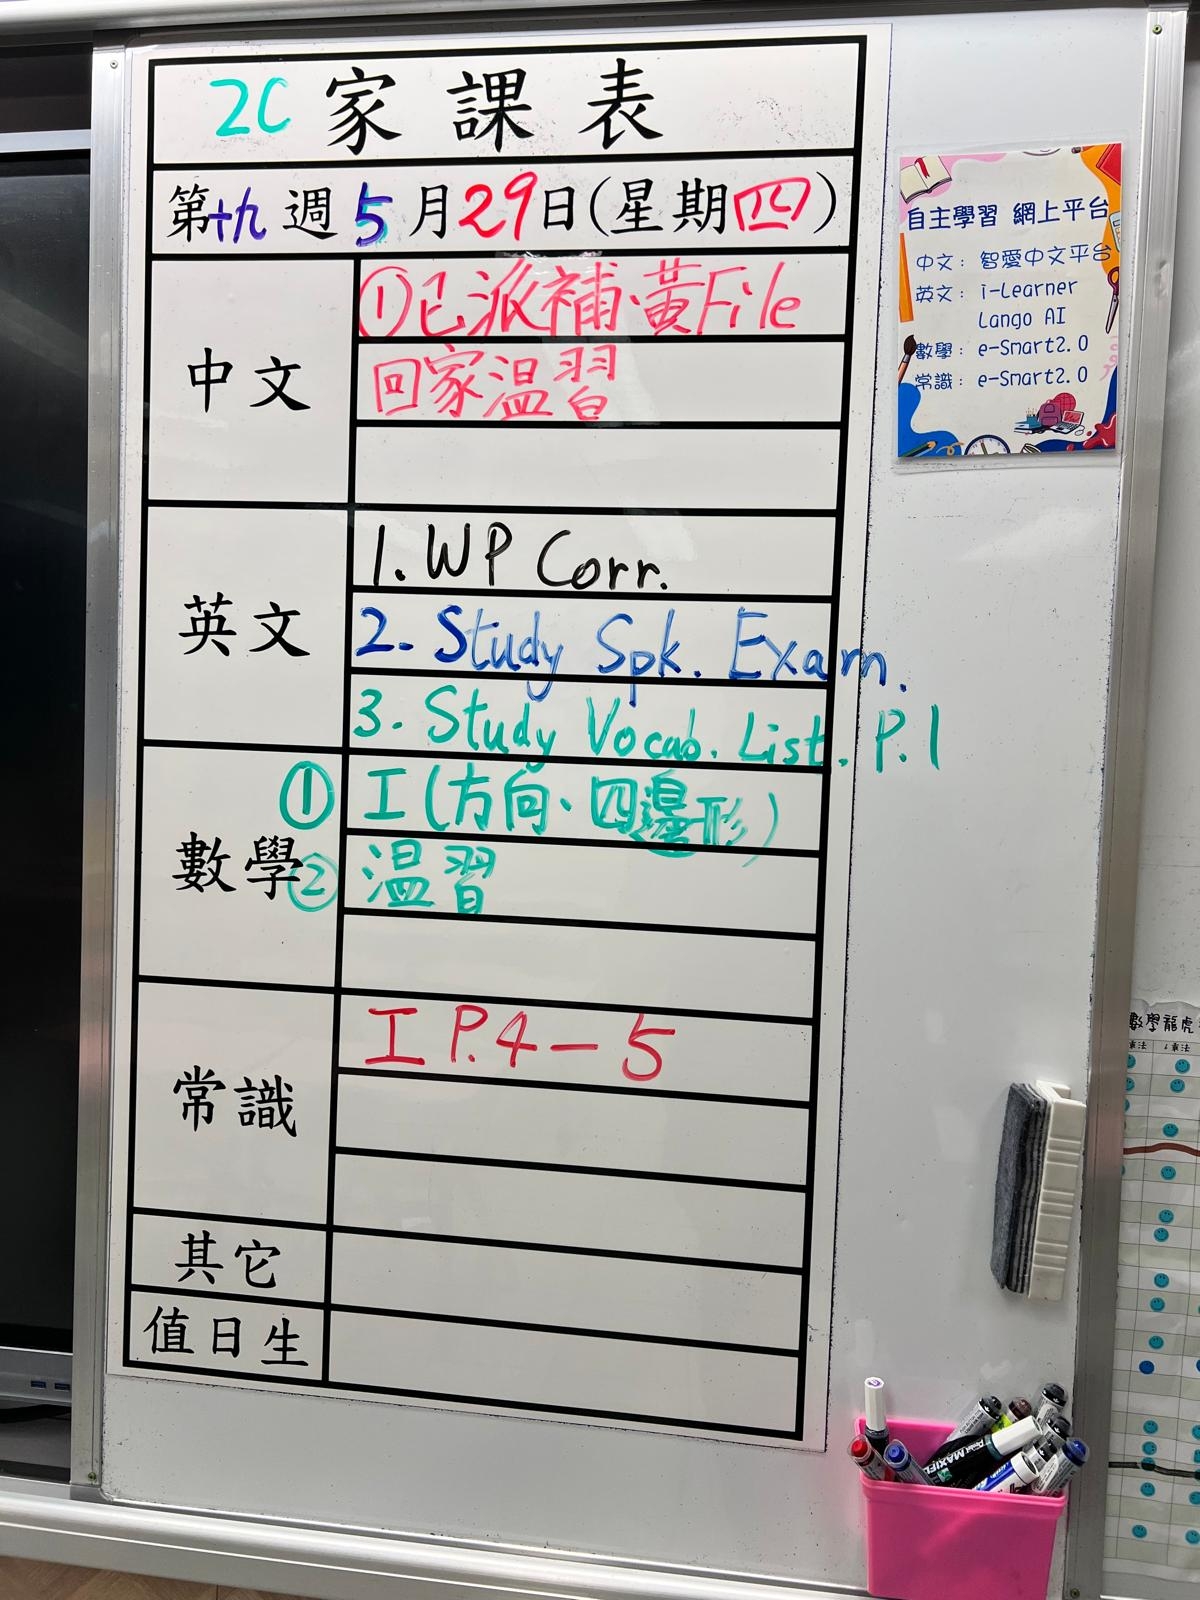 2C 家課表
第十九週5月29日(星期四)
中文
①已派補·黃File
回家温習
英文
1. WP Corr.
2. Study Spk. Exam.
3. Study Vocab. List. P.1
數學
① 工(方向、四邊形)
② 温習
常識
工 P.4-5
其它
值日生
自主學習 網上平台
中文：智愛中文平台
英文：i-Learner
Lango AI
數學：e-Smart2.0
常識：e-Smart2.0
數學龍虎